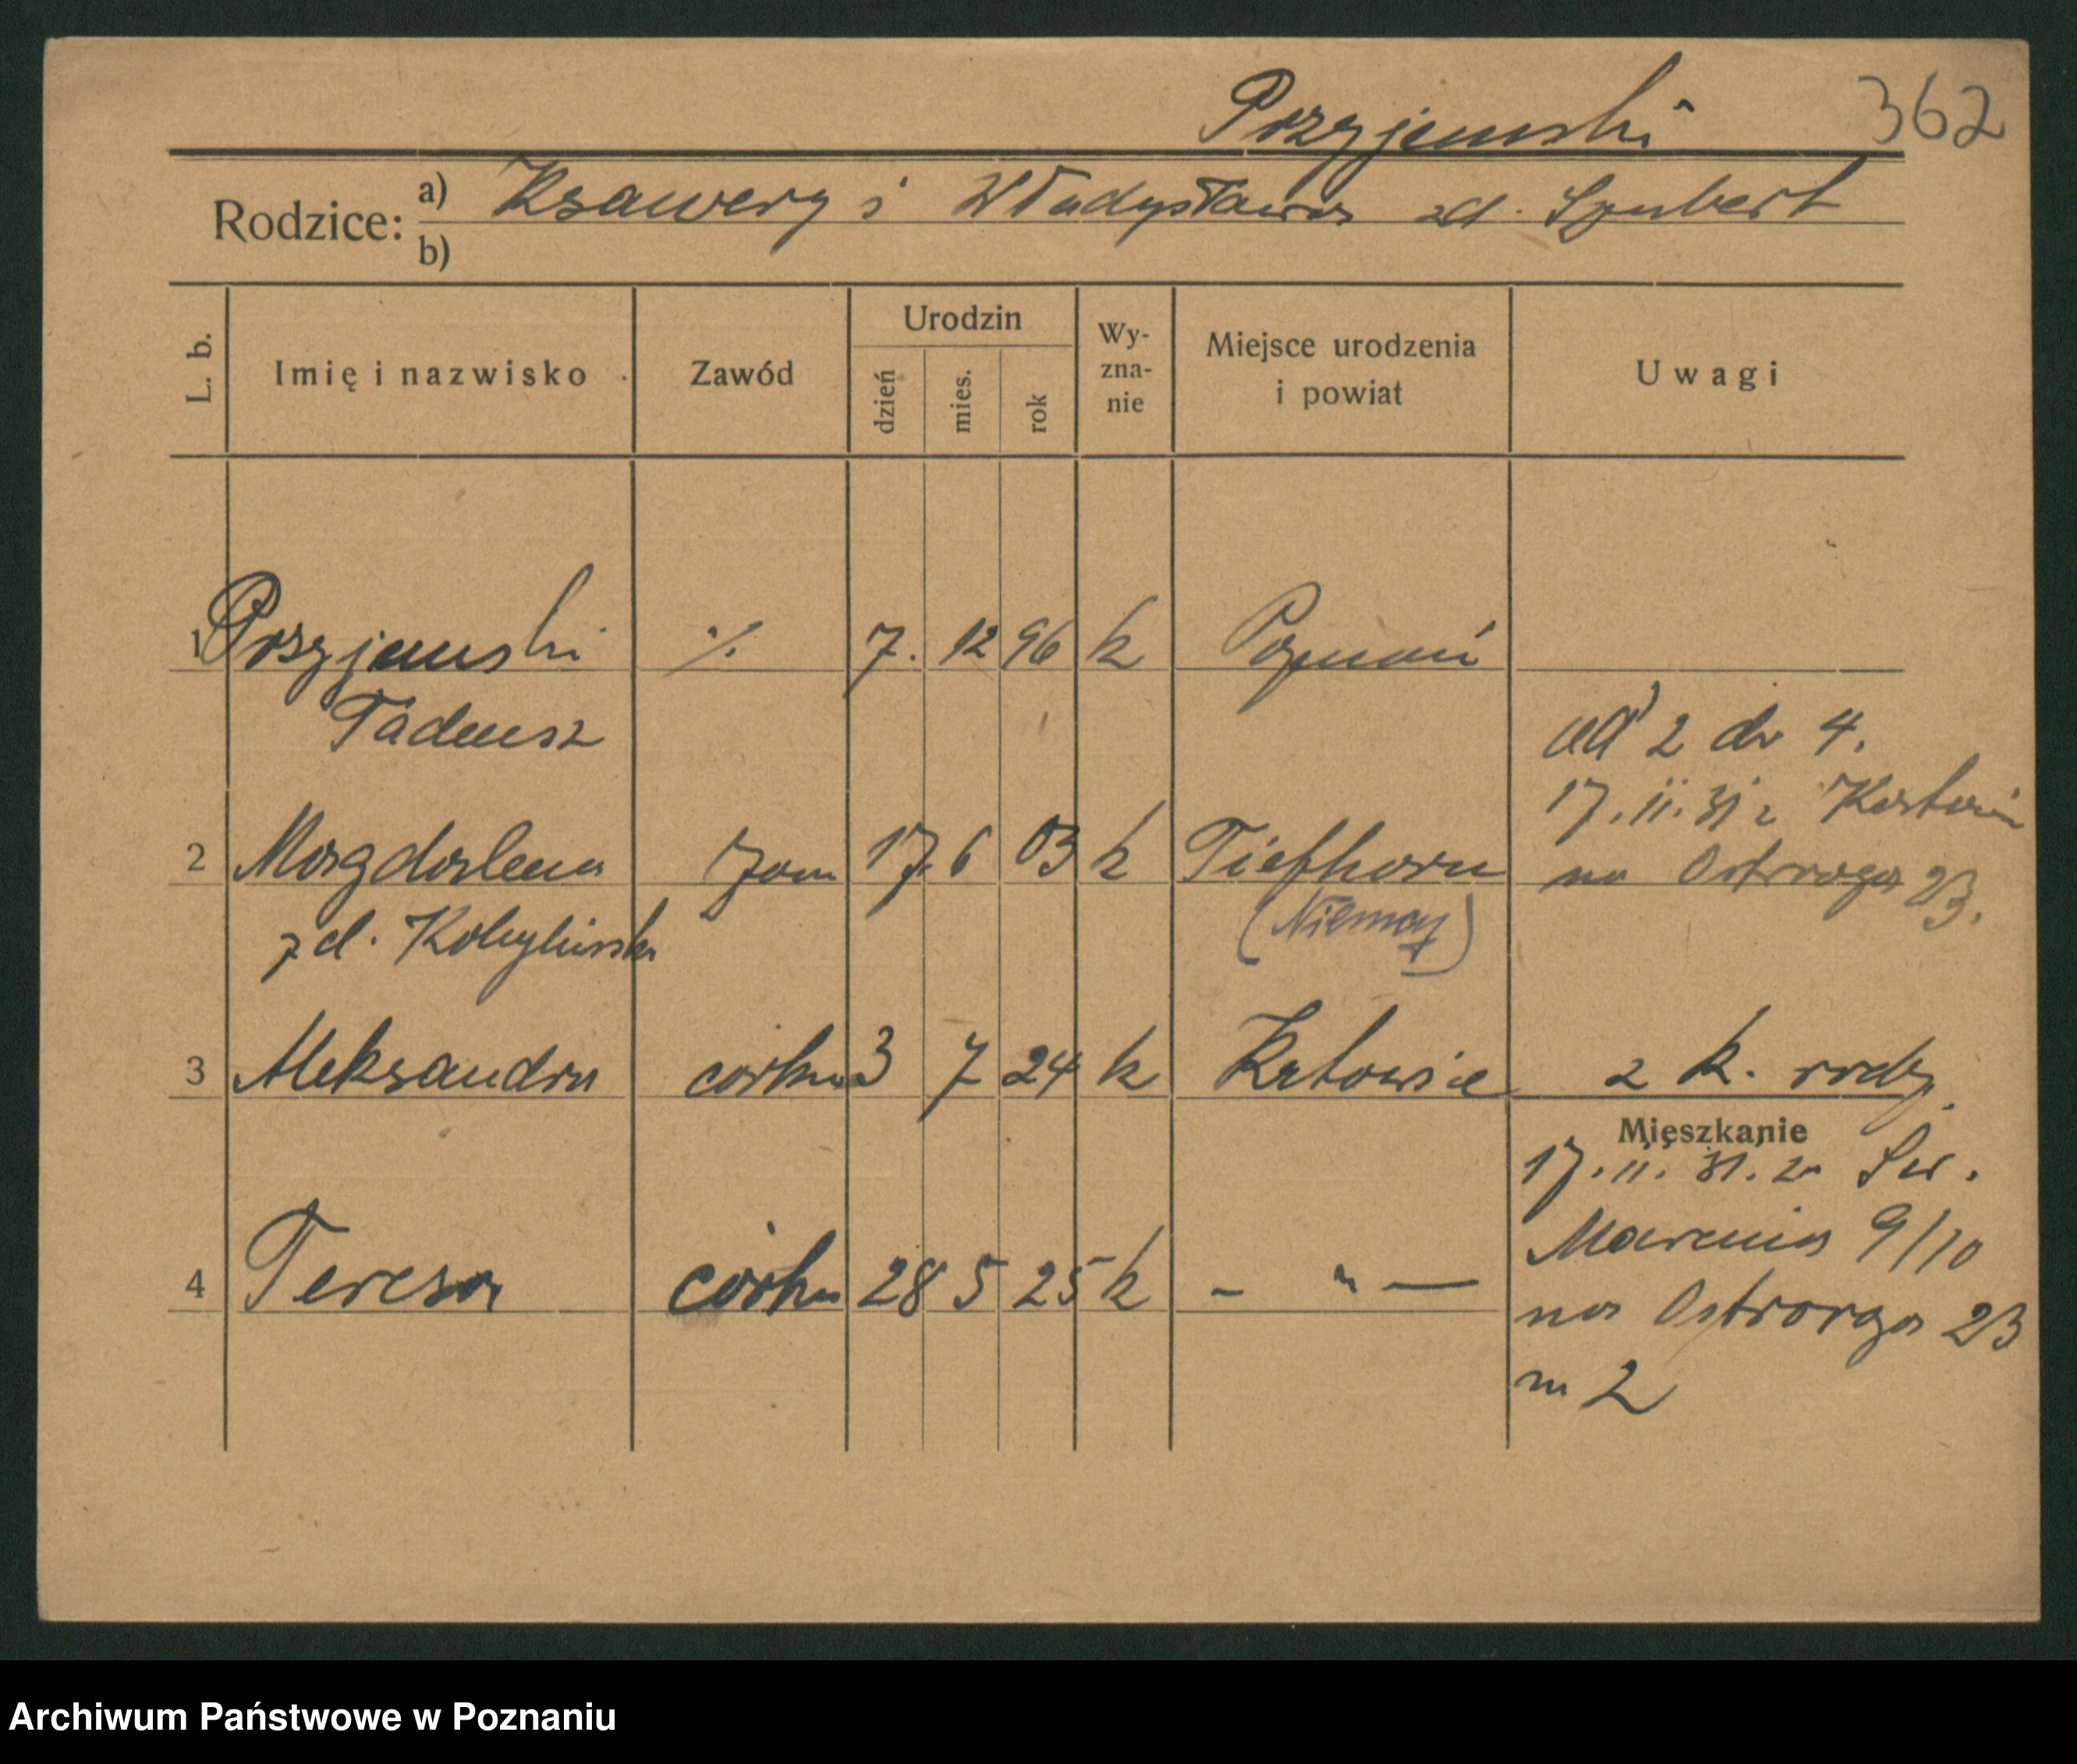 Przyjemski 362
Rodzice: a) Ksawery i Władysława zd. Szubert
b)
L. b. Imię i nazwisko Zawód Urodzin dzień mies. rok Wy-zna-nie Miejsce urodzenia i powiat Uwagi
1 Przyjemski ./. 7. 12 96 k Poznań
Tadeusz
od 2 do 4.
17.11.31 z
2 Magdalena żona 17. 6 03 k
na Ostroroga 23.
zd. Kobylińska (Niemcy)
3 Aleksandra córka 3 7 24 k Katowice z k. rodz.
Mieszkanie
17.11.31. z Św.
Marcina 9/10
4 Teresa córka 28 5 25 k - " -
na Ostroroga 23
m 2
Archiwum Państwowe w Poznaniu